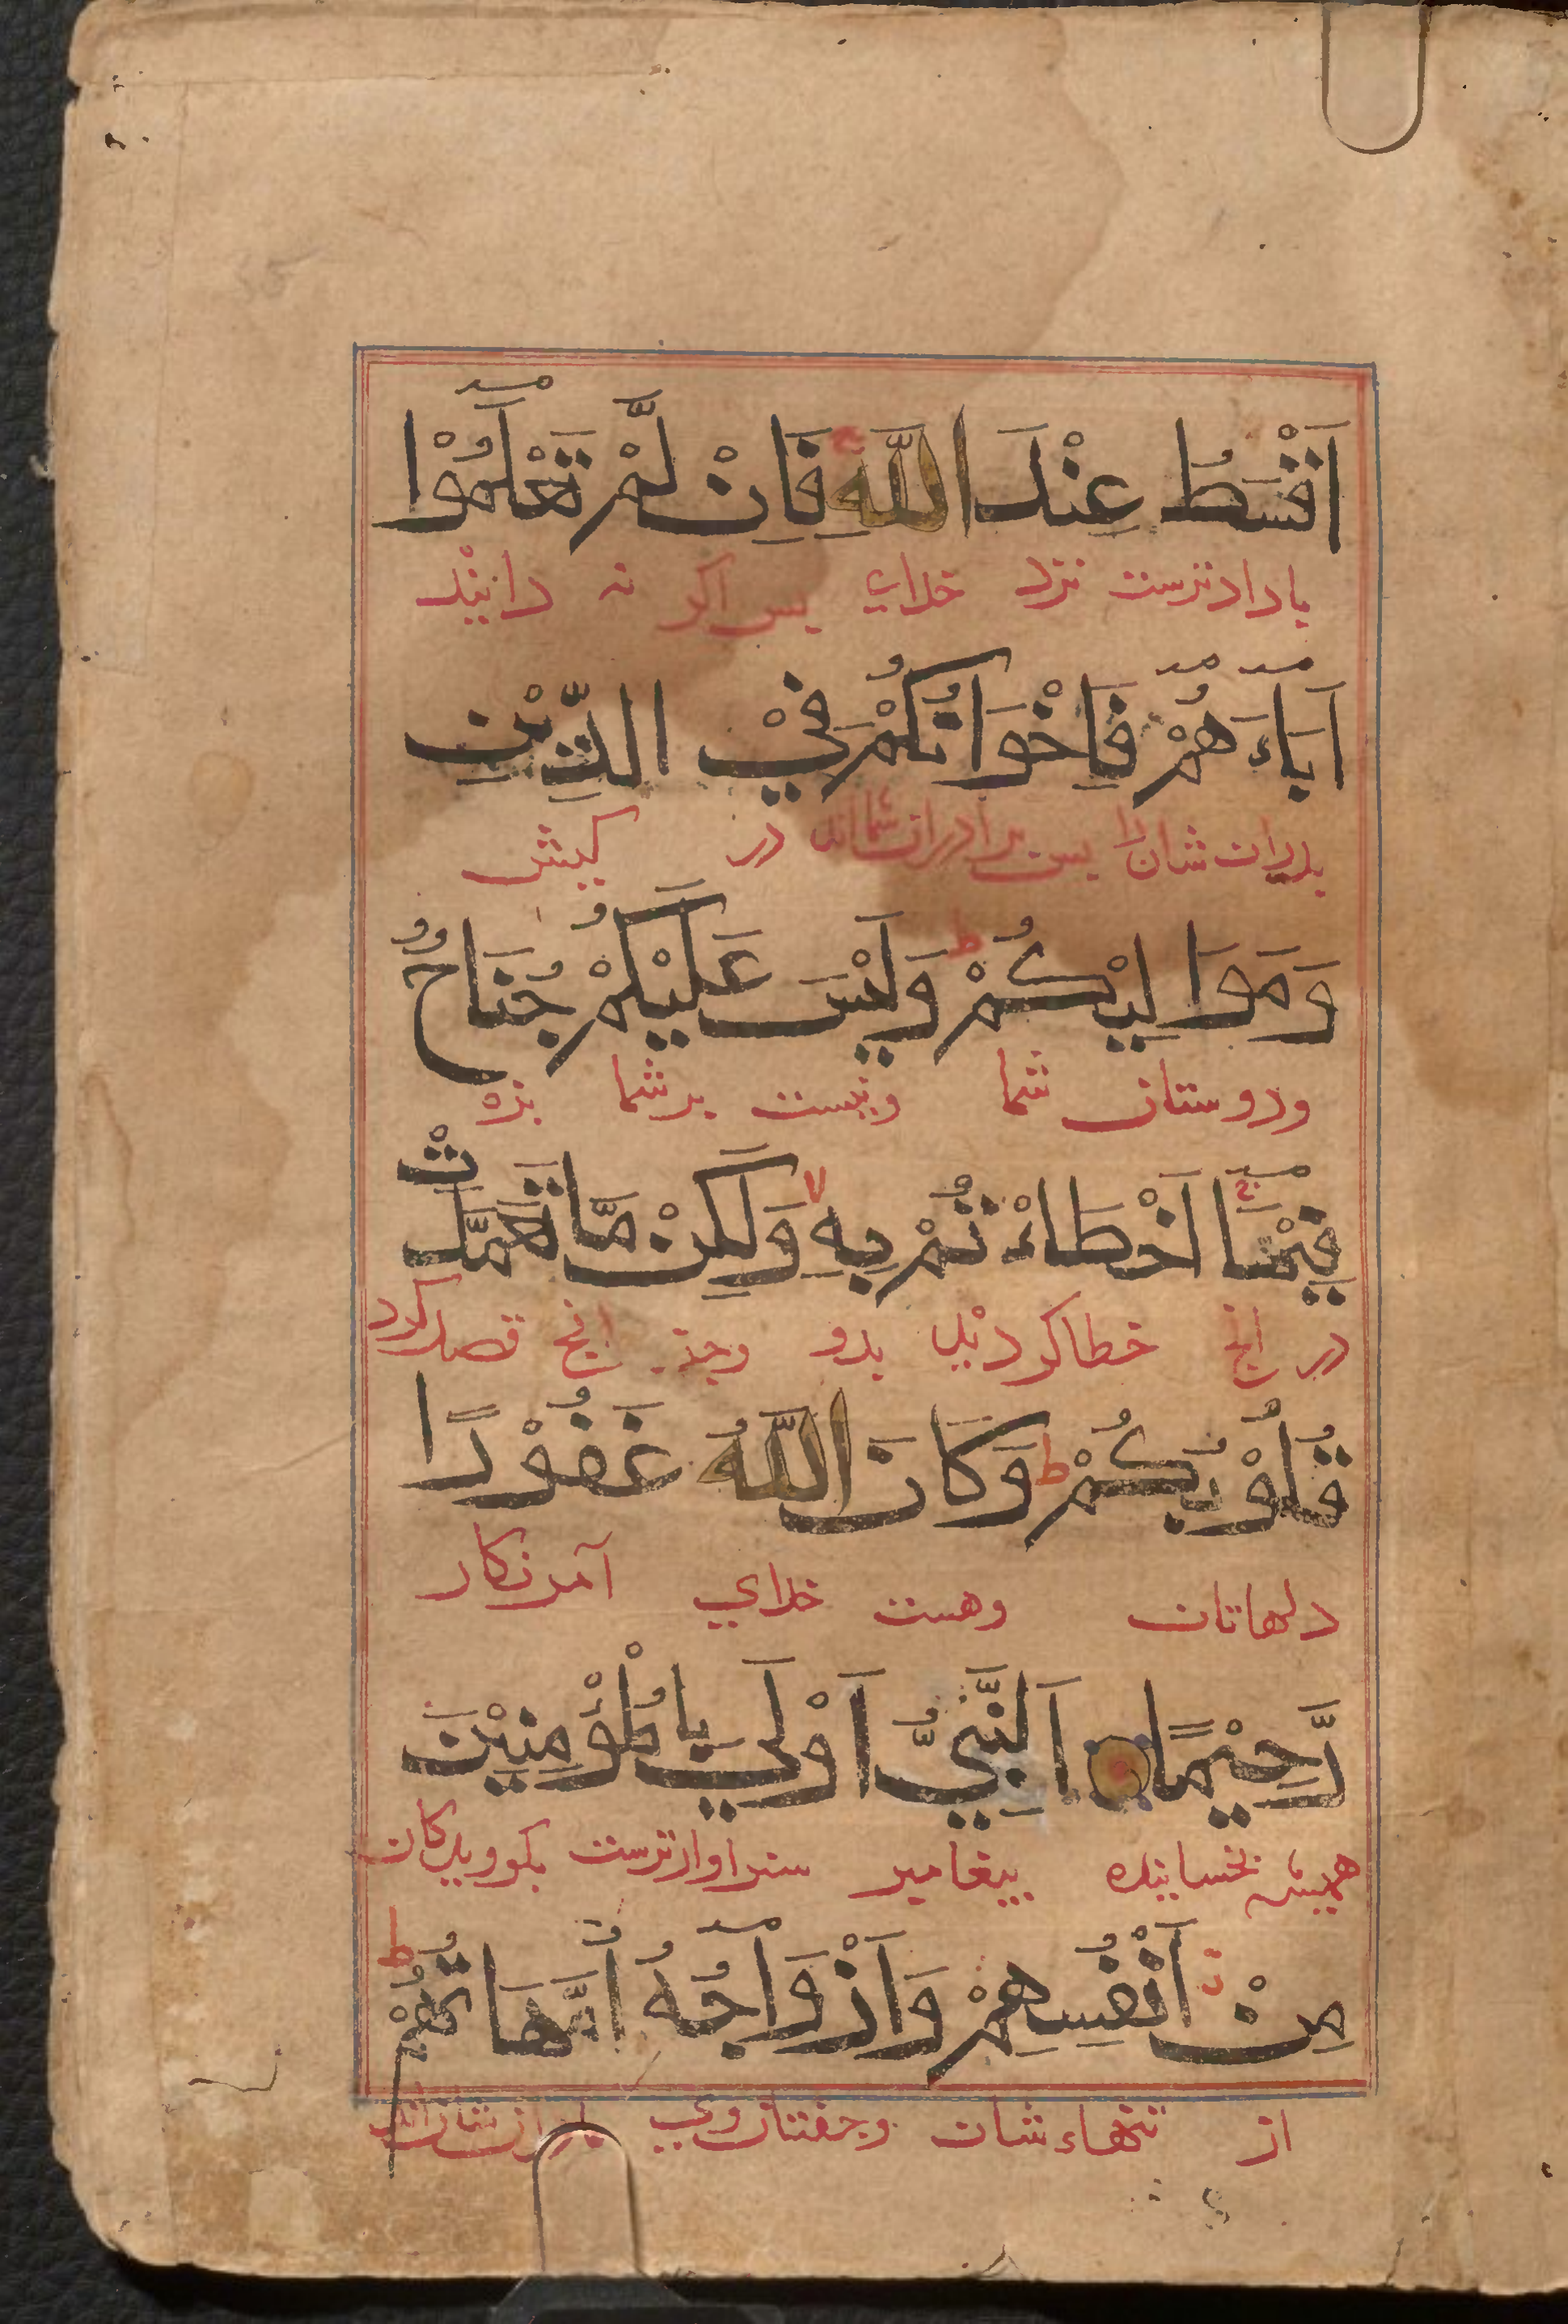 اَقْسَطُ عِنْدَ اللّٰهِ فَاِنْ لَّمْ تَعْلَمُوْٓا
با دادترست نزد خدای پس اکر نه دانید
اَبَآءَهُمْ فَاِخْوَانُكُمْ فِيْ الدِّيْنِ
پدران شان را پس برادران شمااند در کیش
وَمَوَالِيْكُمْ ط وَلَيْسَ عَلَيْكُمْ جُنَاحٌ
ودوستان شما ونیست بر شما بزه
فِيْمَآ اَخْطَاءْتُمْ بِهٖ لا وَلٰكِنْ مَّا تَعَمَّدَتْ
در انچ خطا کردید بدو انچ قصد کرد
قُلُوْبُكُمْ ط وَكَانَ اللّٰهُ غَفُوْرًا
دلهاتان وهست خدای آمرزکار
رَّحِيْمًا اَلنَّبِيُّ اَوْلٰي بِالْمُؤْمِنِيْنَ
همیشه بخساینده پیغامبر سزاوارترست بکرویدکان
مِنْ اَنْفُسِهِمْ وَاَزْوَاجُهٗٓ اُمَّهَاتُهُمْ ط
از تنهاء شان وجفتان وی شان اند